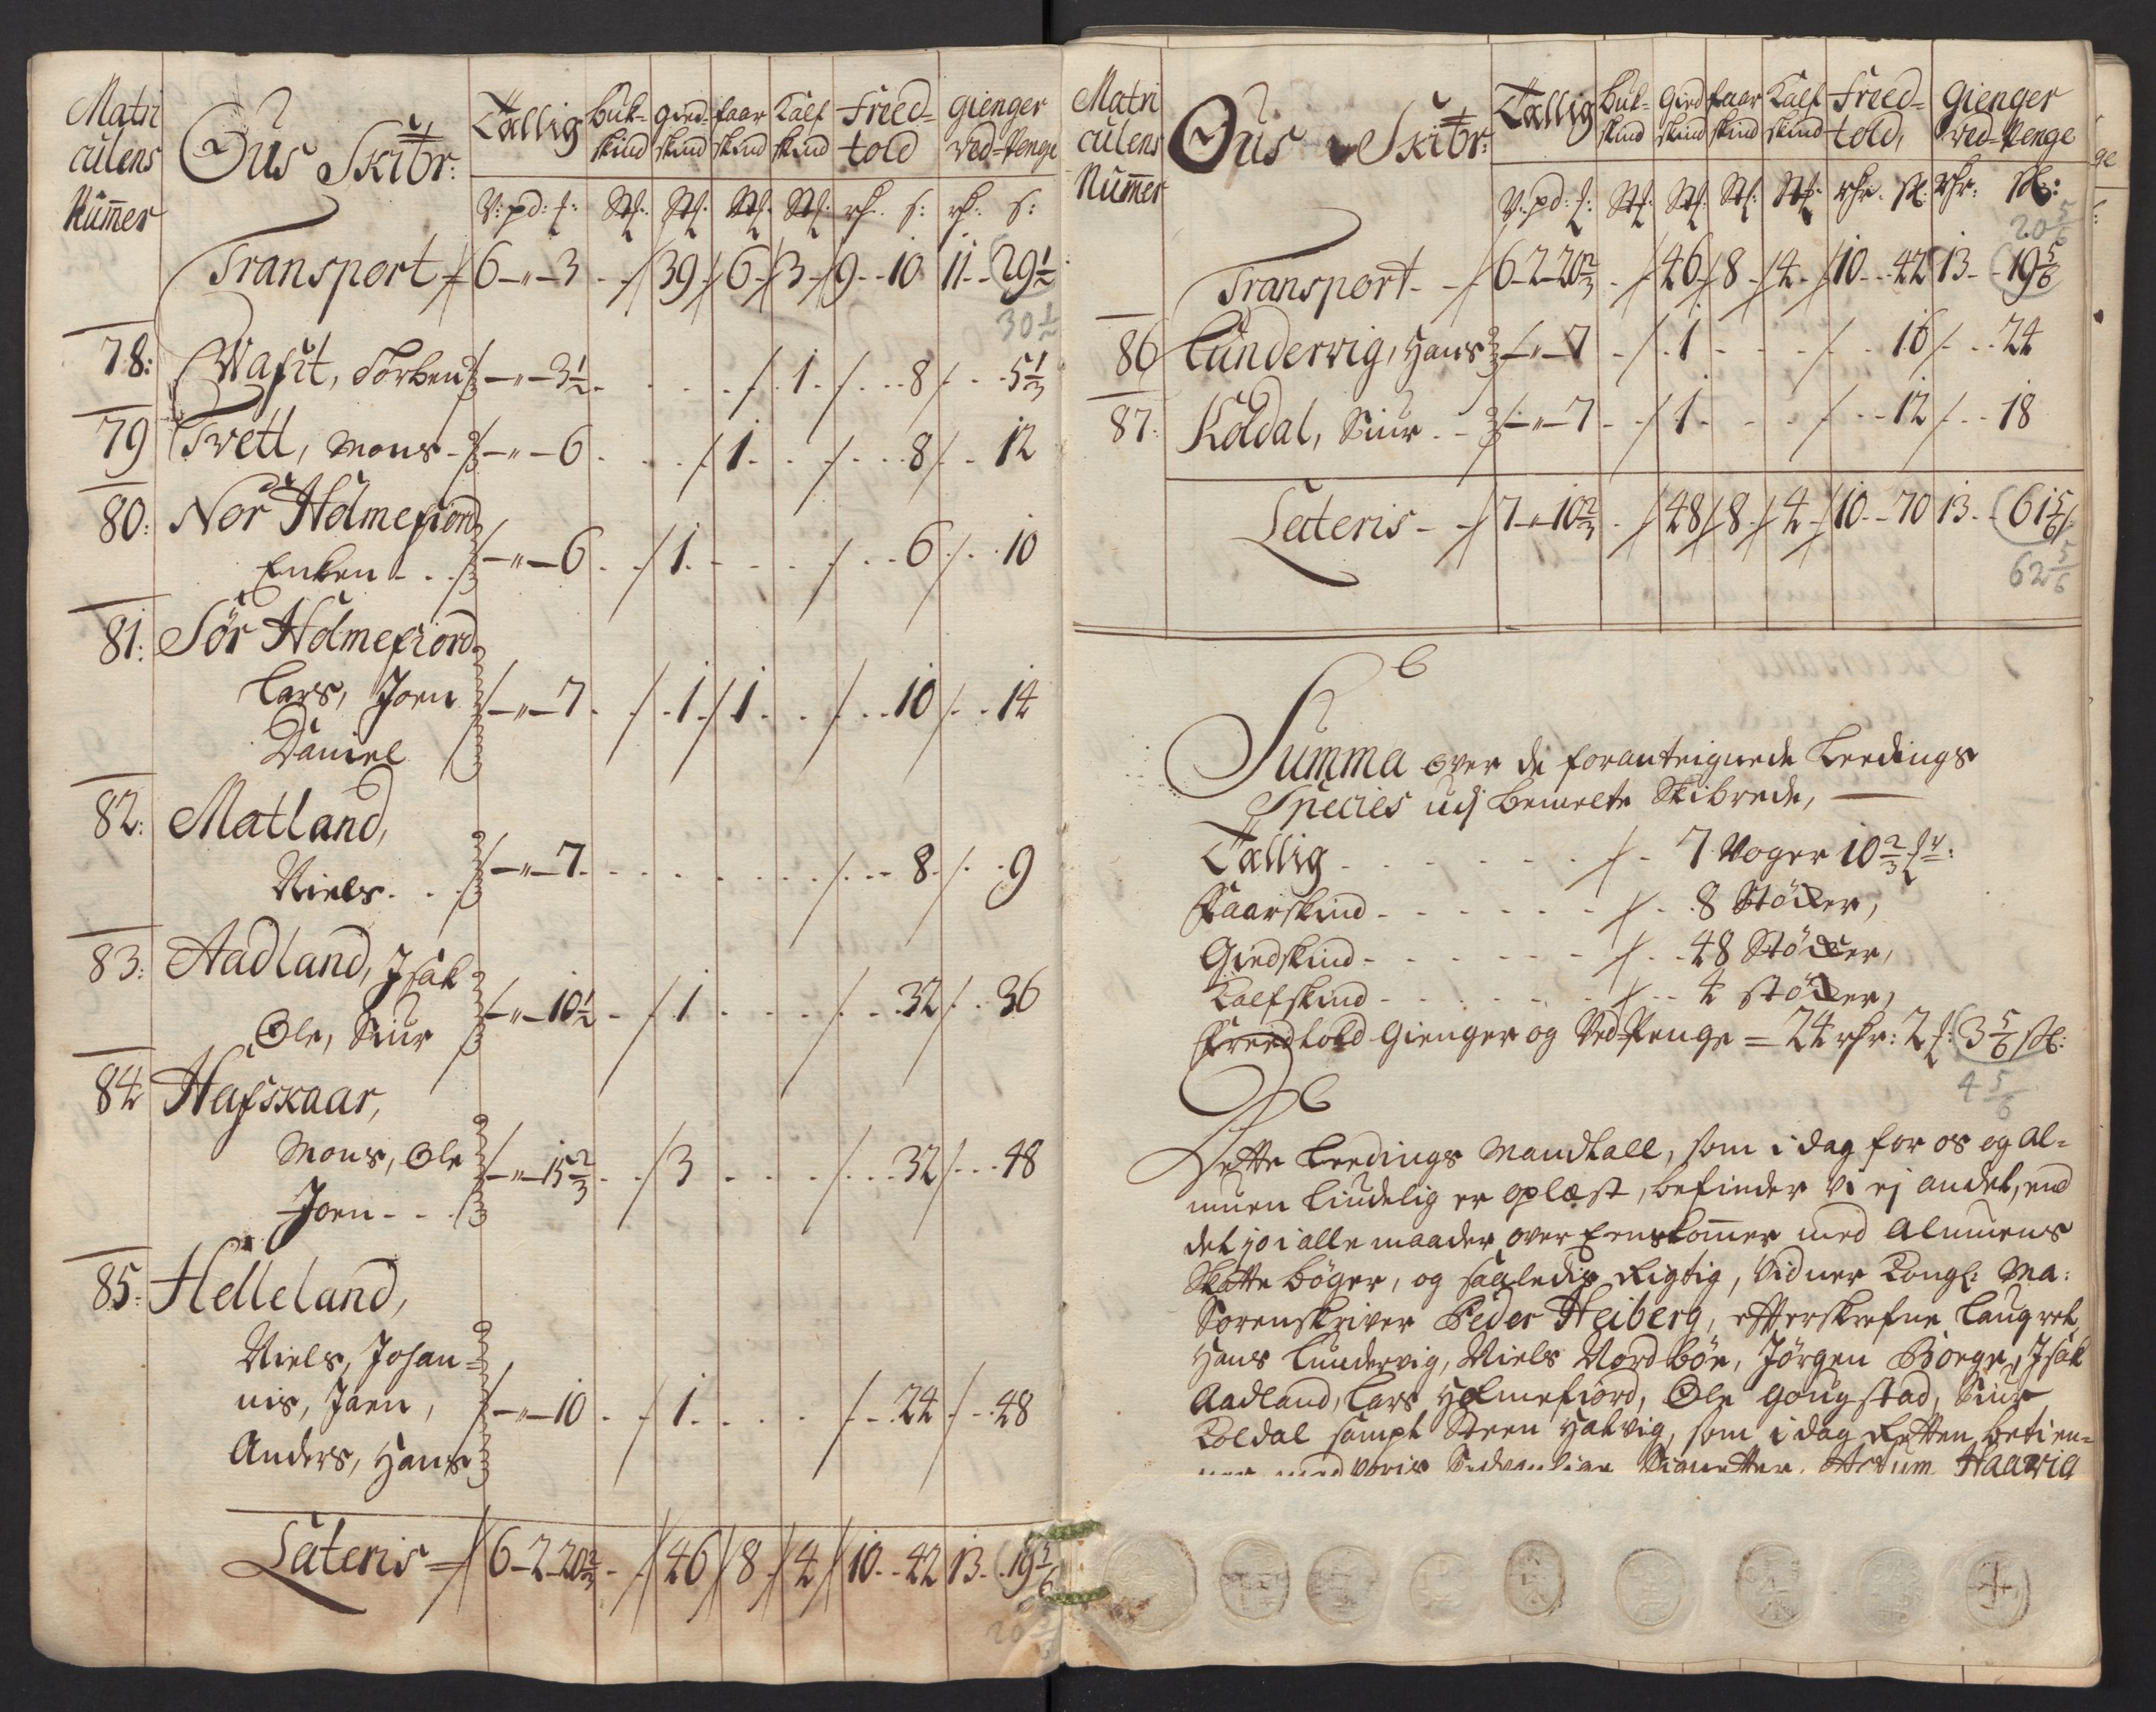 Matri
culens
Nummer
Ous Skibr:
Tallig
buk-
skind
gied-
skind
faar
skind
Calf
skind
Freed-
told
gienger
ved-Penge
V: pd: £:
Stk:
Stk:
Stk:
Stk:
rhr. s:
rhr. s:
Transport 6 — " — 3 - 39 - 6 - 3 - 9 - 10 11 - 29½
30½
78: Torben — " — 3½ - 1 - 8 - 5⅓
79 Tvett, Mons — " — 6 - 1 - 8 - 12
80: Nor Holmefiord
Enken - — " — 6 - 1 - 6 - 10
81: Sör Holmefiord
Lars, Joen — " — 7 - 1 - 1 - 10 - 14
Daniel
82: Matland,
Niels - — " — 7 - 8 - 9
83: Aadland, Isak
Ole, Siur — " — 10½ - 1 - 32 - 36
84 Hafskaar,
Mons, Ole — " — 15⅔ - 3 - 32 - 48
Joen - -
85: Helleland,
Niels, Johan=
nis, Jaen, — " — 10 - 1 - 24 - 48
Anders, Hans
Lateris 6 - 2 - 20⅔ - 46 8 4 10 - 42 13 - 19⅚
20
Matri
culens
Nummer
Ous Skibr:
Tallig
buk-
skind
Gied
skind
faar
skind
Calf
skind
Freed=
told,
Gienger
ved-Penge
V: pd: £:
Stk:
Stk:
Stk:
Stk:
rhr. sk:
rhr: sk:
20⅚
Transport - 6 - 2 - 20⅔ - 46 - 8 - 4 - 10 - 42 13 - 19⅚
86 Lundervig, Hans — " — 7 - 1 - 16 - 24
87: Koldal, Siur - — " — 7 - 1 - 12 - 18
Lateris - 7 - " 10⅔ - 48 8 4 10 - 70 13 - 61⅚
62⅚
Summa over de foranteignede Leedings
Species udj bemelte Skibrede, —
Tallig - 7 Voger 10⅔ £:
Faarskind - 8 Støcker,
Giedskind - 48 Støcker,
Calfskind - 4 støcker,
Freedtold Gienger og Ved-Penge = 24 rhr: 2 £: 3⅚ sk:
4⅚
Dette Leedings Mandtall, som i dag for os og Al=
muen liudelig er oplæst, befinder vi ej andet, end
det jo i alle maader over Eenskommer med Almuens
Skatte bøger, og saaledis Rigtig, Vidner Kongl: Ma:
Sorenskriver Peder Heiberg, efterskrefne Laugret,
Hans Lundervig, Niels Nordbøe, Jörgen Borge, Isak
Aadland, Lars Holmefiord, Ole Gougstad, Siur
Koldal sampt Steen Hatvig, som i dag Retten betien=
med voris Sedvanlige Signetter. Actum Haavig